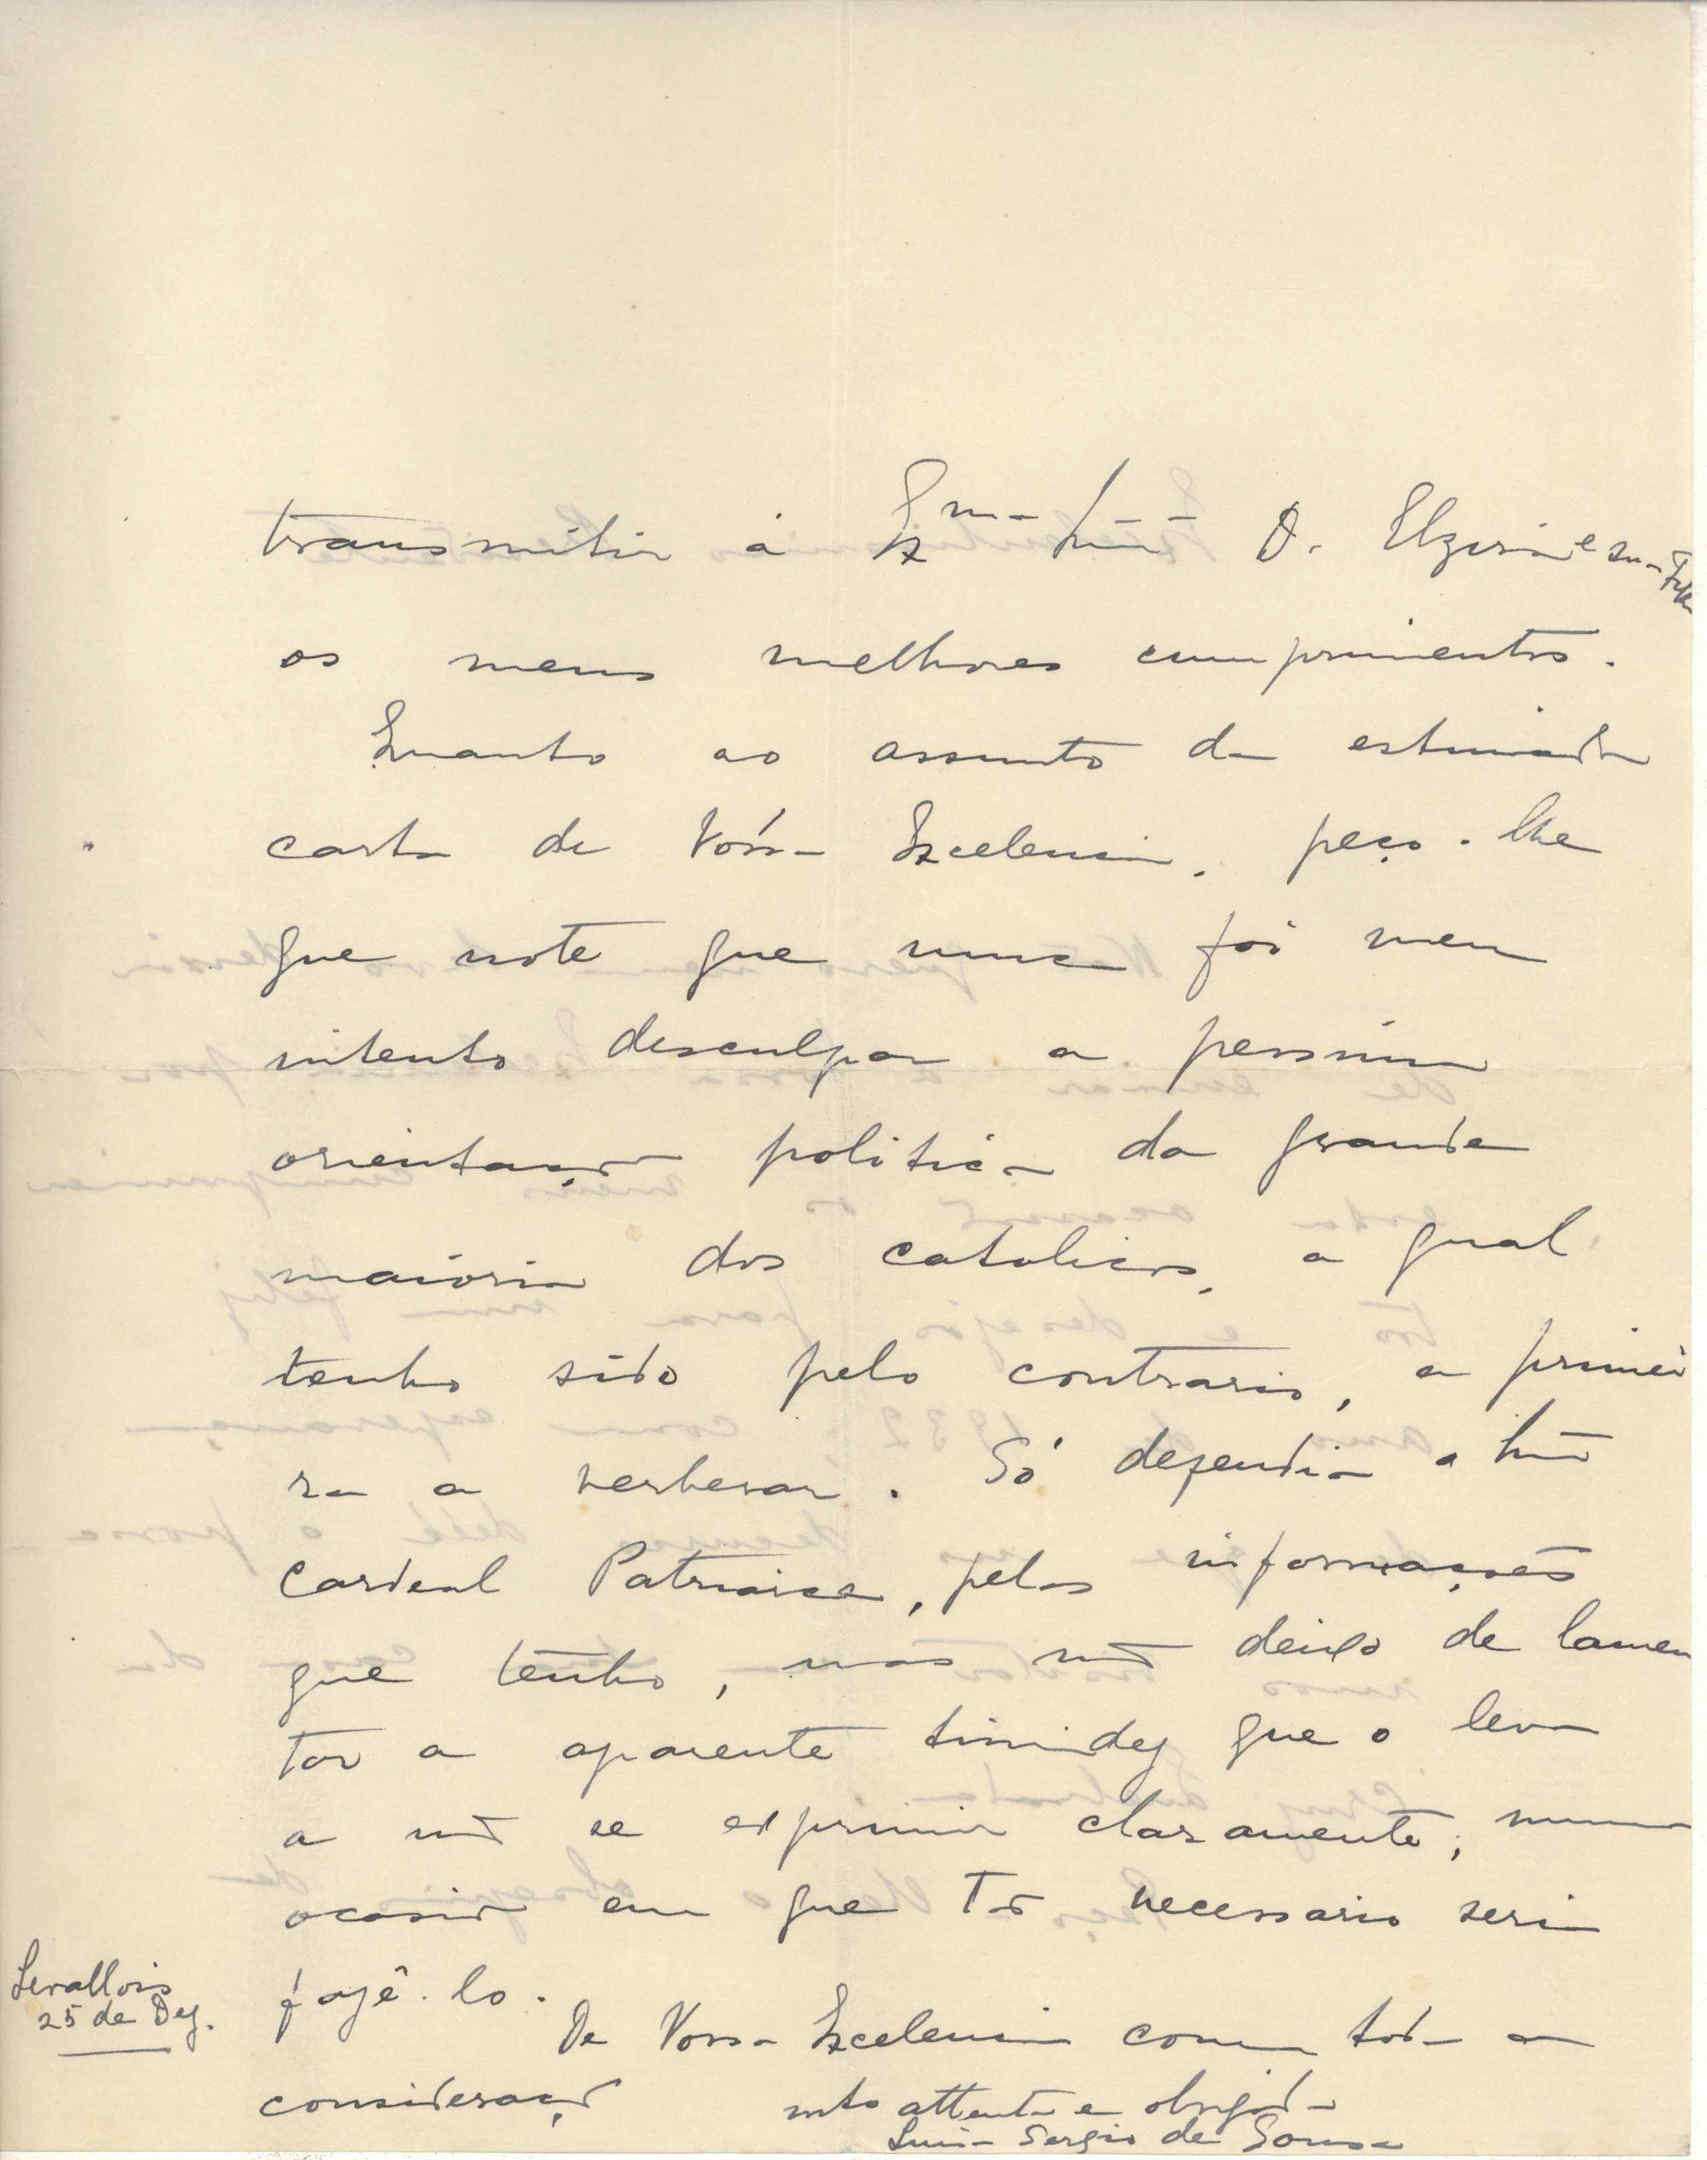 transmitir á Ex.ma Snrã D. Elzira e sua
os meus melhores cumprimentos.
Quanto ao assunto da estimada
carta de Vóssa Excelencia, peço-lhe
que note que nunca foi meu
intento desculpar a pessima
orientação politica da grande
maioria dos catolicos, a qual
tenho sido pelo contrario, a primei
ra a verberar. Só defendia o
Cardeal Patriarca, pelas informações
que tenho, mas não deixo de lamen
tar a aparente timidez que o leva
a não se exprimir claramente, numa
ocasião em que tão necessario seria
fazê-lo.
Levallois
25 de Dez.
De Vossa Excelencia com toda a
consideração
mto attenta e obrigada
Luisa Sergio de Sousa